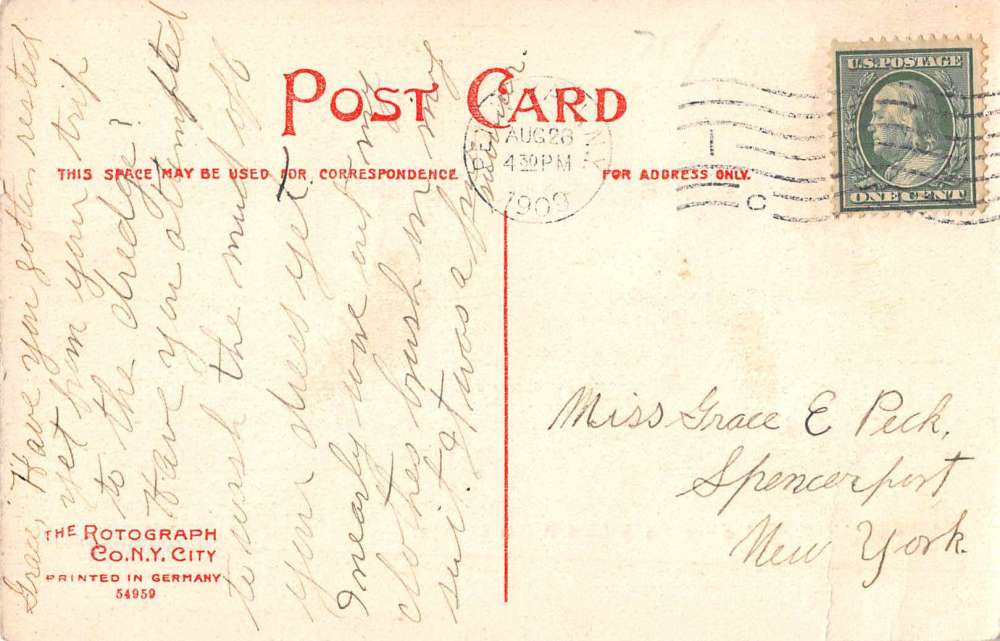 POST CARD
THIS SPACE MAY BE USED FOR CORRESPONDENCE
FOR ADDRESS ONLY.
U.S. POSTAGE
ONE CENT
AUG 28
4 30 PM
1909
C
Miss Grace E Peck,
Spencerport
New York.
Grace, Have you gotten rested
yet from your trip
to the dredge?
Have you attempted
to wash the mud off
your dress yet
I nearly wore out my
clothes brush on my
suit. It was a
THE ROTOGRAPH
CO. N.Y. CITY
PRINTED IN GERMANY
54959